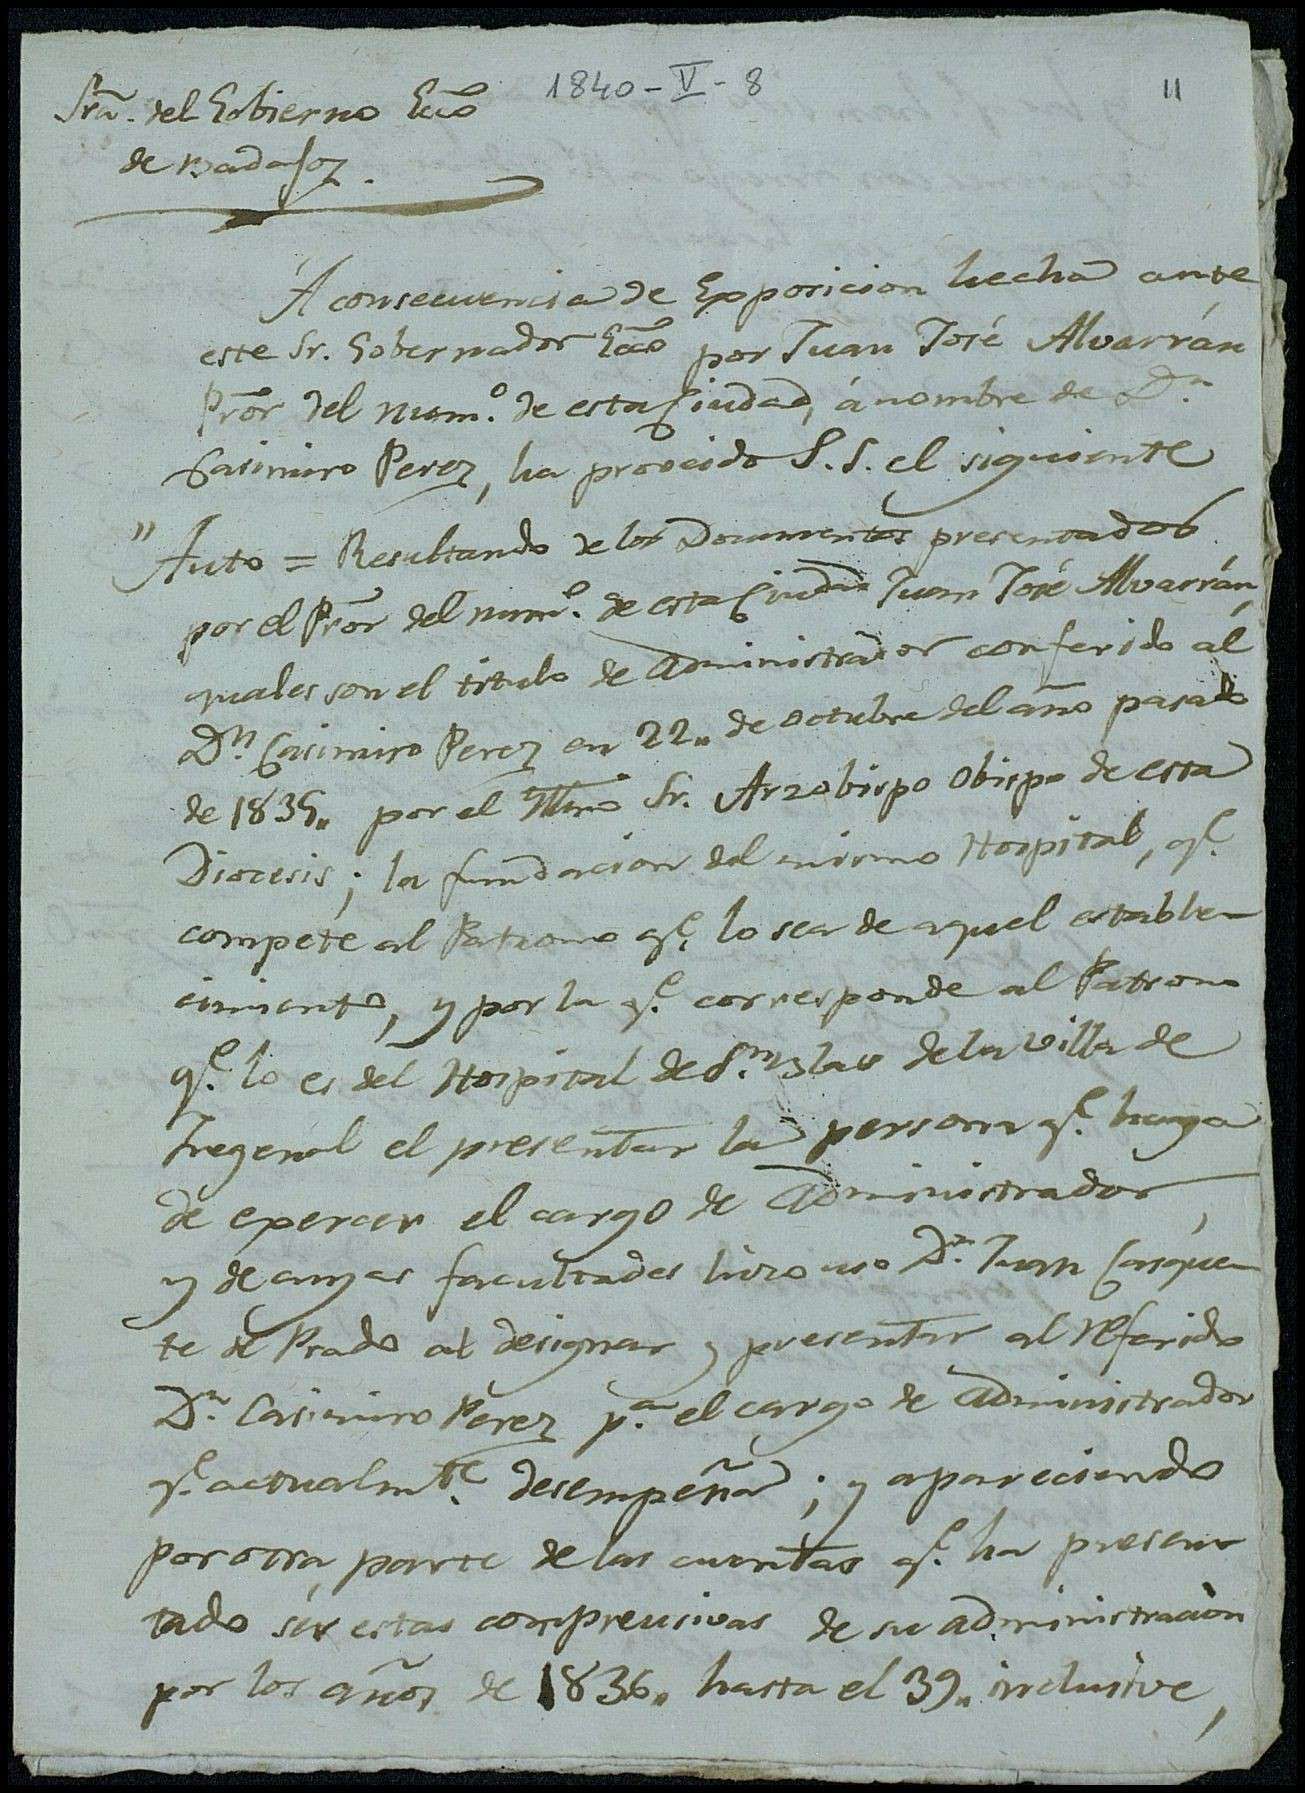 1840-V-8
11
Sria. del Gobierno Ecco
de Badajoz.
A consecuencia de Exposicion hecha ante
este Sr. Gobernador Ecco por Juan José Alvarrán
Pror del num.º de esta Ciudad, á nombre de Dn
Casimiro Perez, ha proveido S.S. el siguiente
" Auto = Resultando de los Documentos presentados
por el Pror del num.º de esta Ciudad Juan José Alvarrán,
quales son el titulo de Administrador conferido al
Dn Casimiro Perez en 22,, de Octubre del año pasado
de 1835,, por el Illmo Sr. Arzobispo Obispo de esta
Diocesis; la fundacion del mismo Hospital, qe.
compete al Patrono qe. lo sea de aquel estable-
cimiento, y por la qe. corresponde al Patrono
qe. lo es del Hospital de Sn Blas de la Villa de
Fregenal el presentar la persona qe. haya
de exercer el cargo de Administrador,
y de cuyas facultades hizo uso Dn. Juan Casque-
te de Prado al designar y presentar al referido
Dn. Casimiro Perez pa. el cargo de Administrador
qe. actualmte. desempeña; y apareciendo
por otra parte de las cuentas qe. ha presen-
tado sér estas comprensivas de su administracion
por los años de 1836,, hasta el 39,, inclusive,